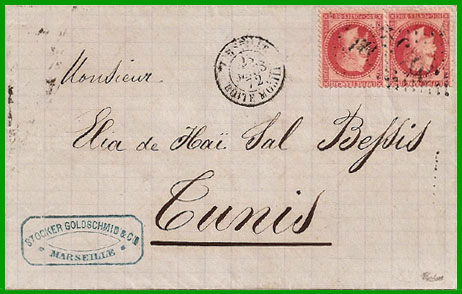 Monsieur
Elia de Haï Sal Bessis
Tunis
STOCKER GOLDSCHMID & Cie
MARSEILLE